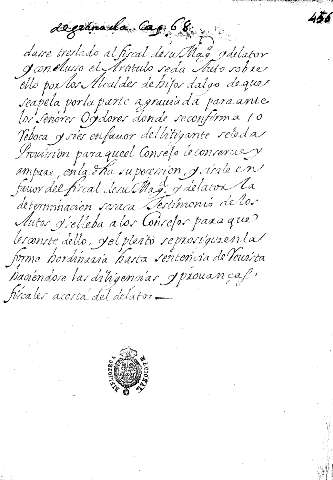 de granada. Cap. 68.
456
dasse treslado al fiscal de su Magᵈ y delator
y concluso el Articulo se da Auto sobre
ello por los Alcaldes de hijos dalgo de que
se apela por la parte agraviada para ante
los Señores Oydores donde se confirma 1o
Reboca y si es en favor del litigante se le da
Provision para que el Consejo le conserve y
ampare, en la dha su posesion, y si sale en
favor del fiscal de su Magᵈ y delator la
determinacion se saca Testimonio de los
Autos y se lleba a los Consejos para que
les conste dello, y el pleito se prosigue en la
forma hordinaria hasta sentencia de Revista
haciendose las diligencias, y provanças
fiscales a costa del delator